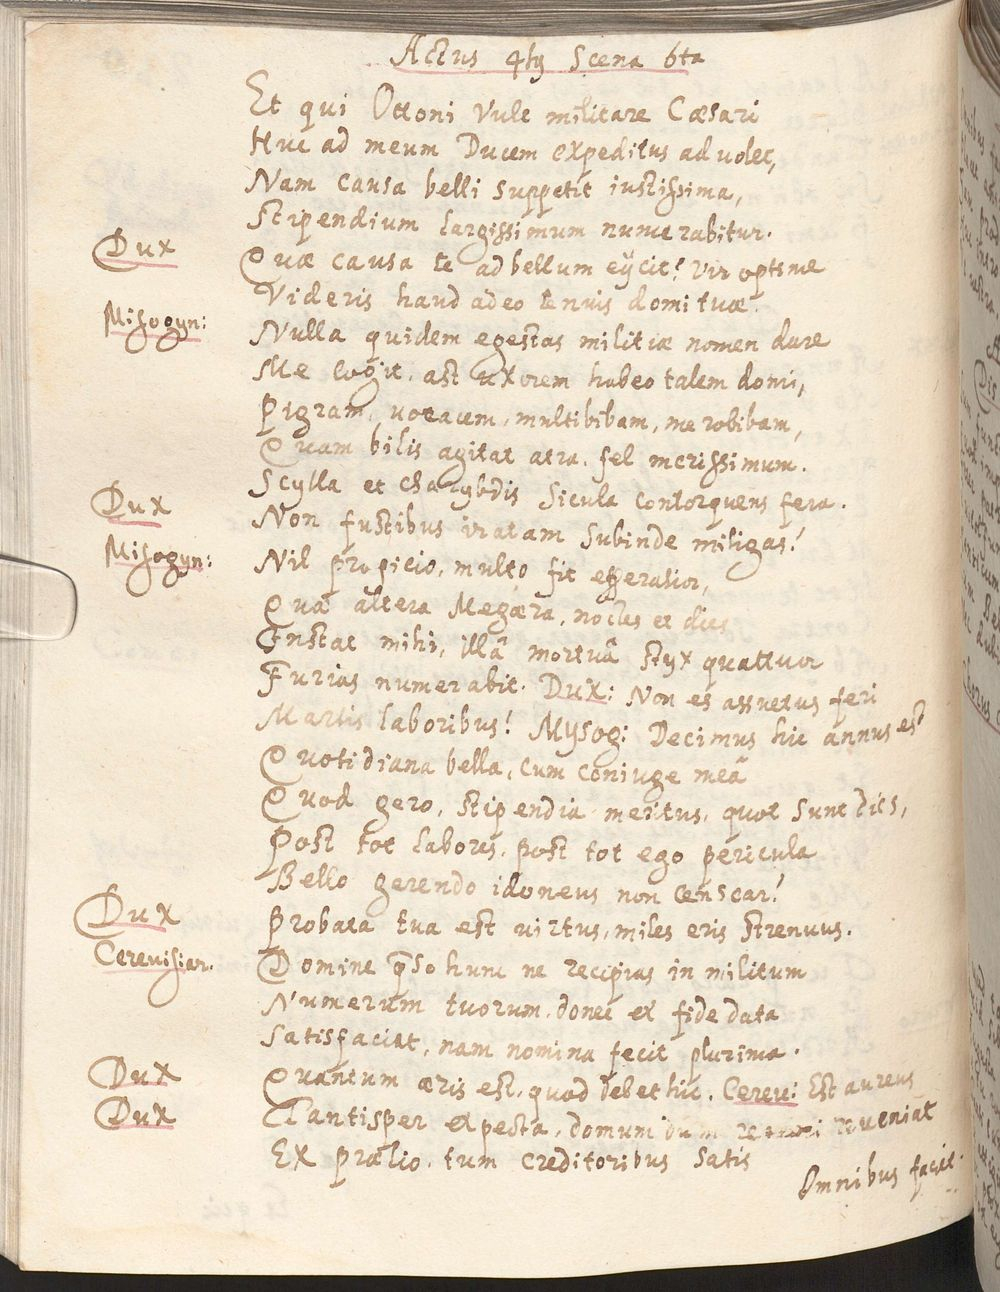 Actus 4ti Scena 6ta
Et qui Ottoni Vult militare Cæsari
Huc ad meum Ducem expeditus aduolet,
Nam causa belli suppetit iustissima,
Stipendium largissimum numerabitur.
Dux Quæ causa te ad bellum eijcit? Vir optime
Videris haud adeo tenuis domi tuæ.
Misogyn: Nulla quidem egestas militiæ nomen dare
Me cogit, ast uxorem habeo talem domi,
Pigram, uoracem, multibibam, merobibam,
Quam bilis agitat atra, fel merissimum.
Scylla et Charybdis Sicula contorquens fera.
Dux Non fustibus iratam subinde mitigas?
Misogyn: Nil proficio, multo fit efferatior,
Quâ altera Megæra, noctes et dies
Instat mihi, illâ mortuâ Styx quattuor
Furias numerabit. Dux: Non es assuetus feri
Martis laboribus! Mysog: Decimus hic annus est
Quotidiana bella, cum coniuge meâ
Quod gero, stipendia meritus, quot sunt dies,
Post tot labores, post tot ego pericula
Bello gerendo idoneus non censear!
Dux Probata tua est uirtus, miles eris strenuus.
Cereuisiar. Domine qso hunc ne recipias in militum
Numerum tuorum, donec ex fide data
Satisfaciat, nam nomina fecit plurima.
Dux Quantum æris est, quod debet hic. Cereu: Est aureus
Dux Tantisper expecta, domum dum reueniat
Ex prælio, tum creditoribus satis
Omnibus faciet.